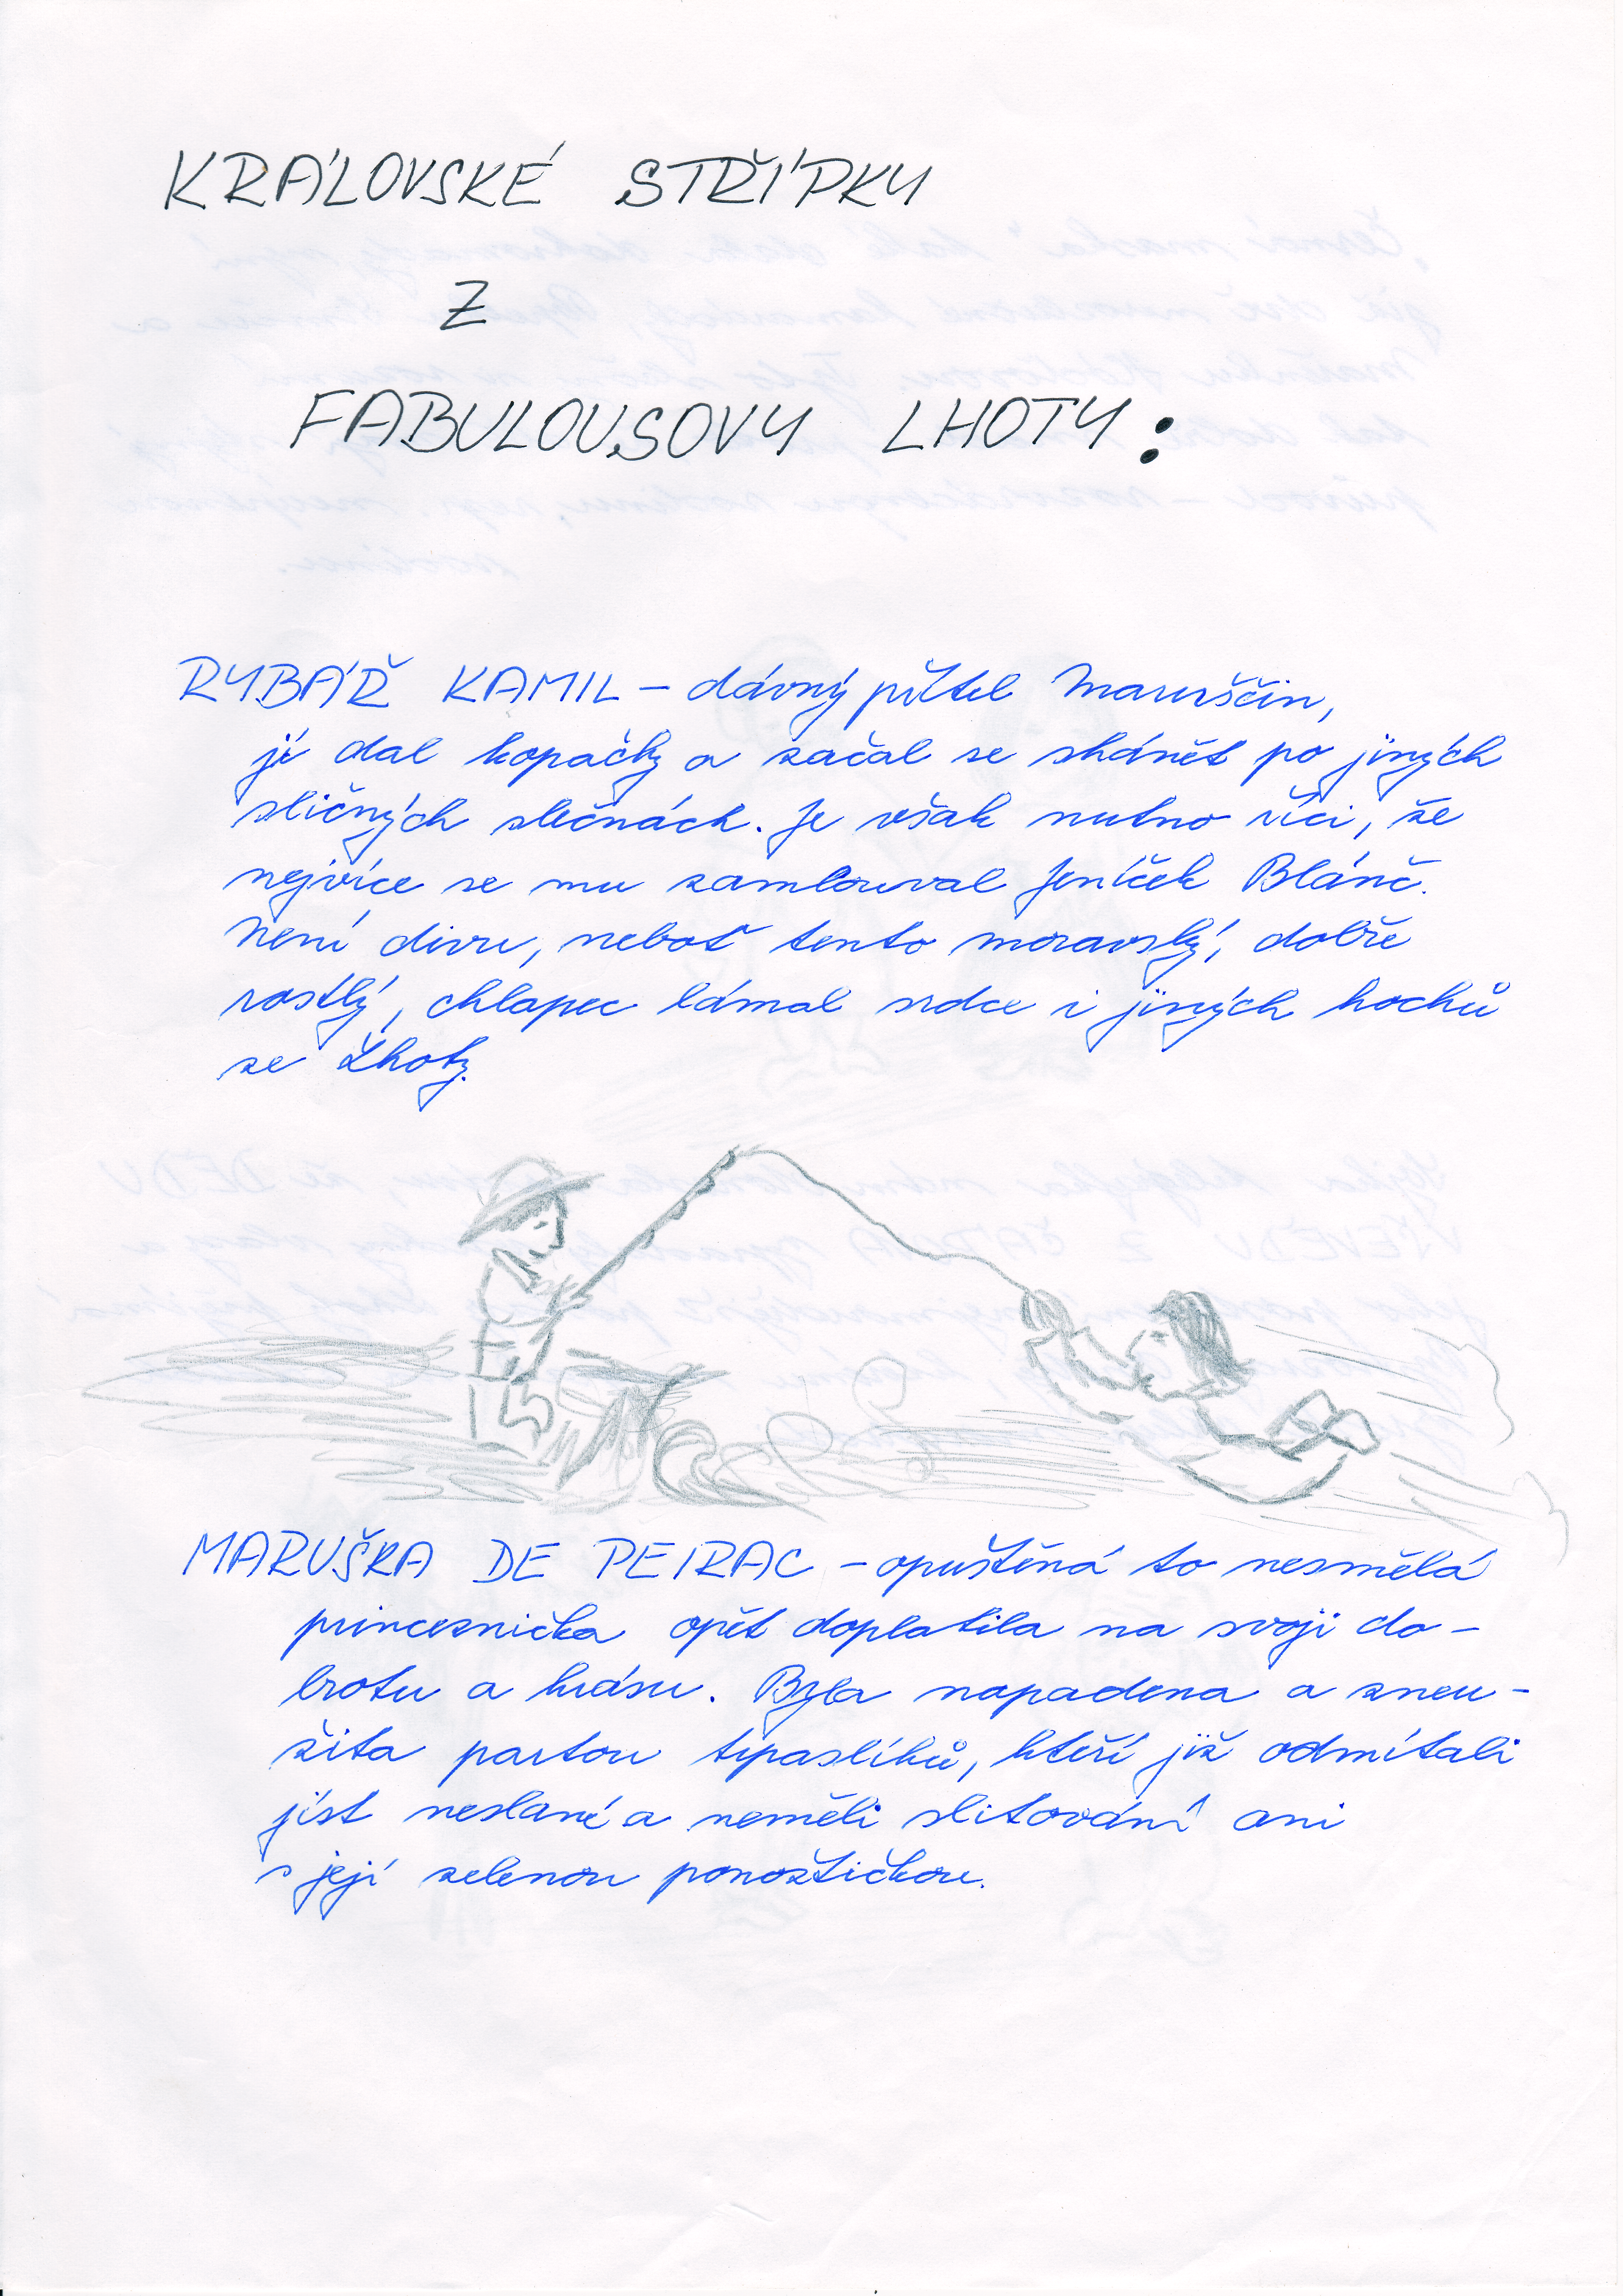 KRÁLOVSKÉ STŘÍPKY
Z
FABULOUSOVY LHOTY:
RYBÁŘ KAMIL – dávný přítel Maruščin,
jí dal kopačky a začal se shánět po jiných
sličných slečnách. Je však nutno říci, že
nejvíce se mu zamlouval Jeníček Blánč.
Není divu, neboť tento moravský, dobře
rostlý, chlapec lámal srdce i jiných hochů
ze Lhoty.
MARUŠKA DE PEIRAC – opuštěná to nesmělá
princeznička opět doplatila na svoji do-
brotu a krásu. Byla napadena a zneu-
žita partou trpaslíků, kteří již odmítali
jíst neslané a neměli slitování ani
s její zelenou ponožtičkou.